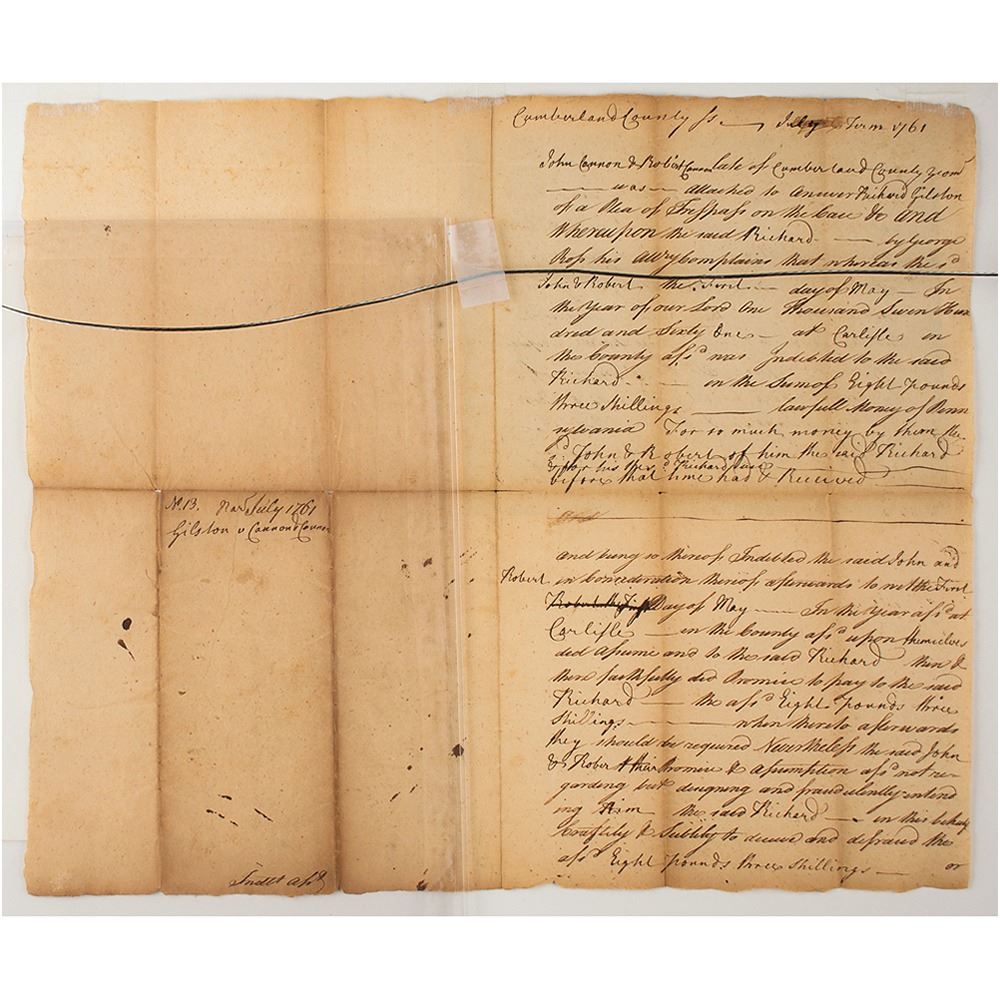 Cumberland County ss. July Term 1761
John Cannon & Robert Cannon late of Cumberland County yeom
was attached to answer Richard Gilston
of a Plea of Trespass on the Case &c And
Whereupon the said Richard by George
Ross his Attry complains that whereas the sd
John & Robert the First day of May In
the Year of our Lord One Thousand Seven Hun
dred and Sixty One at Carlisle in
the County afsd was Indebted to the said
Richard in the Sum of Eight Pounds
three Shillings lawfull Money of Penn
sylvania For so much money by them the
sd John & Robert of him the said Richard
before that time had & Received
and being so thereof Indebted the said John and
Robert in Concederation thereof afterwards to wit the First
Day of May In the Year afsd at
Carlisle in the County afsd upon themselves
did Assume and to the said Richard then &
there faithfully did Promise to pay to the said
Richard the afsd Eight Pounds three
Shillings when thereto afterwards
they should be required Nevertheless the said John
& Robert their Promise & assumption afsd not re-
garding but designing and fraudulently intend
ing him the said Richard in this behalf
Craftily & Subtily to deceive and defraud the
afsd Eight Pounds three Shillings or
No. 13. July 1761
Gilston v Cannon & Cannon
Indbt assd